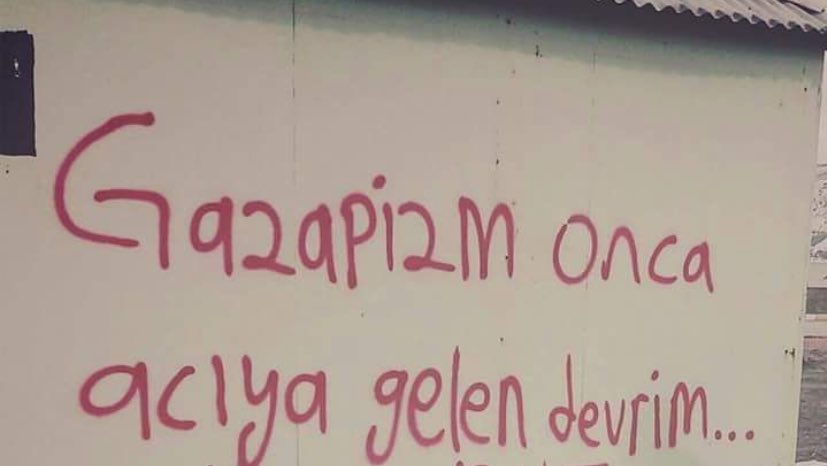 Gazapizm onca
acıya gelen devrim...